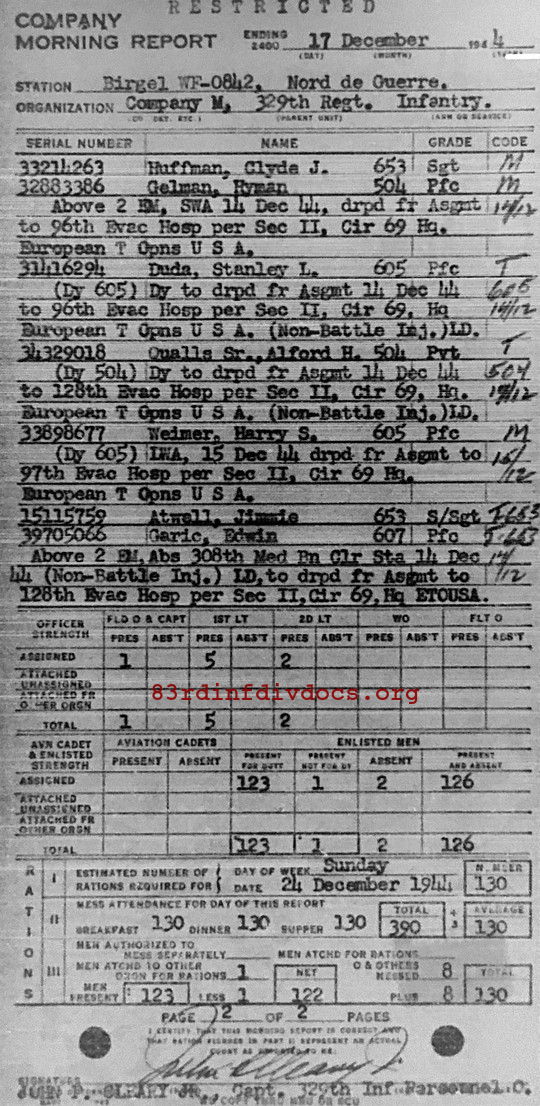 RESTRICTED
COMPANY
MORNING REPORT ENDING 2400 17 December 1944
(DAY) (MONTH)
STATION Birgel WF-0842, Nord de Guerre.
ORGANIZATION Company M, 329th Regt. Infantry.
(CO DET. ETC.) (PARENT UNIT) (ARM OR SERVICE)
SERIAL NUMBER NAME GRADE CODE
33214263 Huffman, Clyde J. 653 Sgt M
32883386 Gelman, Hyman 504 Pfc M
Above 2 EM, SWA 14 Dec 44, drpd fr Asgmt 14/12
to 96th Evac Hosp per Sec II, Cir 69 Hq.
European T Opns U S A.
31416294 Duda, Stanley L. 605 Pfc T
(Dy 605) Dy to drpd fr Asgmt 14 Dec 44 605
to 96th Evac Hosp per Sec II, Cir 69, Hq 14/12
European T Opns U S A. (Non-Battle Inj.)LD.
34329018 Qualls Sr., Alford H. 504 Pvt T
(Dy 504) Dy to drpd fr Asgmt 14 Dec 44 504
to 128th Evac Hosp per Sec II, Cir 69, Hq. 14/12
European T Opns U S A. (Non-Battle Inj.)LD.
33898677 Weimer, Harry S. 605 Pfc M
(Dy 605) LWA, 15 Dec 44 drpd fr Asgmt to 15/12
97th Evac Hosp per Sec II, Cir 69 Hq.
European T Opns U S A.
15115759 Atwell, Jimmie 653 S/Sgt T-653
39705066 Garic, Edwin 607 Pfc
Above 2 EM, Abs 308th Med Bn Clr Sta 14 Dec 14/12
44 (Non-Battle Inj.) LD, to drpd fr Asgmt to
128th Evac Hosp per Sec II, Cir 69, Hq ETOUSA.
OFFICER STRENGTH FLD O & CAPT 1ST LT 2D LT WO FLT O
PRES ABS'T PRES ABS'T PRES ABS'T PRES ABS'T PRES ABS'T
ASSIGNED 1 5 2
ATTACHED UNASSIGNED
ATTACHED FR OTHER ORGN
83rdinfdivdocs.org
TOTAL 1 5 2
AVN CADET & ENLISTED STRENGTH AVIATION CADETS ENLISTED MEN
PRESENT ABSENT PRESENT FOR DUTY PRESENT NOT FOR DY ABSENT PRESENT AND ABSENT
ASSIGNED 123 1 2 126
ATTACHED UNASSIGNED
ATTACHED FR OTHER ORGN
TOTAL 123 1 2 126
RATIONS
I ESTIMATED NUMBER OF RATIONS REQUIRED FOR DAY OF WEEK Sunday NUMBER
DATE 24 December 1944 130
II MESS ATTENDANCE FOR DAY OF THIS REPORT TOTAL ÷ 3 AVERAGE
BREAKFAST 130 DINNER 130 SUPPER 130 390 130
III MEN AUTHORIZED TO MESS SEPARATELY MEN ATCHD FOR RATIONS
MEN ATCHD TO OTHER ORGN FOR RATIONS 1 NET O & OTHERS MESSED 8 TOTAL
MEN PRESENT 123 LESS 1 122 PLUS 8 130
PAGE 2 OF 2 PAGES
I CERTIFY THAT THIS MORNING REPORT IS CORRECT AND
THAT RATION FIGURES IN PART II REPRESENT AN ACTUAL
COUNT AS REPORTED TO ME.
SIGNATURE
JOHN P. CLEARY JR., Capt. 329th Inf Personnel O.